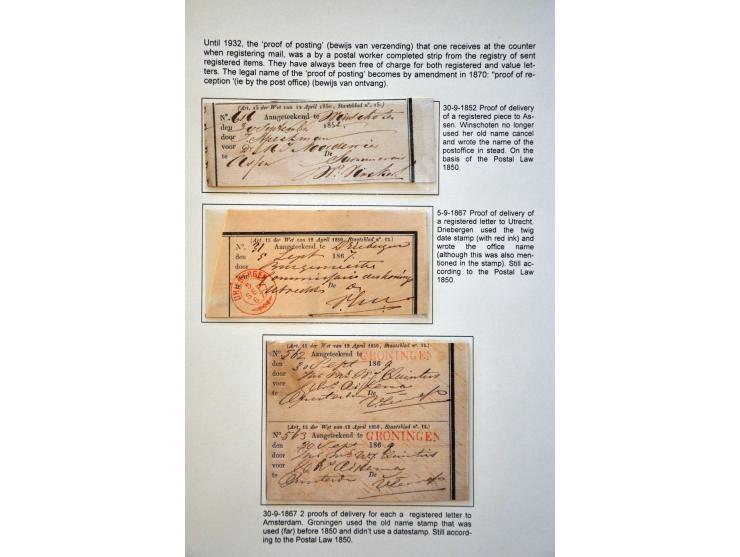 Until 1932, the 'proof of posting' (bewijs van verzending) that one receives at the counter
when registering mail, was a by a postal worker completed strip from the registry of sent
registered items. They have always been free of charge for both registered and value let-
ters. The legal name of the 'proof of posting' becomes by amendment in 1870: "proof of re-
ception '(ie by the post office) (bewijs van ontvang).
(Art. 15 der Wet van 12 April 1850, Staatsblad n°. 15.)
N°. Aangeteekend te Winschoten
den 30 September 1852.
door
voor
te Assen De
30-9-1852 Proof of delivery
of a registered piece to As-
sen. Winschoten no longer
used her old name cancel
and wrote the name of the
postoffice in stead. On the
basis of the Postal Law
1850.
(Art. 15 der Wet van 12 April 1850, Staatsblad n°. 15.)
N°. 31 Aangeteekend te Driebergen
den 5 Sept 1867.
door Burgemeester
voor Commissaris des konings
te Utrecht De
DRIEBERGEN
5-9-1867 Proof of delivery of
a registered letter to Utrecht.
Driebergen used the twig
date stamp (with red ink) and
wrote the office name
(although this was also men-
tioned in the stamp). Still ac-
cording to the Postal Law
1850.
(Art. 15 der Wet van 12 April 1850, Staatsblad n°. 15.)
N°. 562 Aangeteekend te GRONINGEN
den 30 Sept 1869
door
voor
te Amsterdam De
(Art. 15 der Wet van 12 April 1850, Staatsblad n°. 15.)
N°. 563 Aangeteekend te GRONINGEN
den 30 Sept 1869
door
voor
te Amsterdam De
30-9-1867 2 proofs of delivery for each a registered letter to
Amsterdam. Groningen used the old name stamp that was
used (far) before 1850 and didn't use a datestamp. Still accord-
ing to the Postal Law 1850.